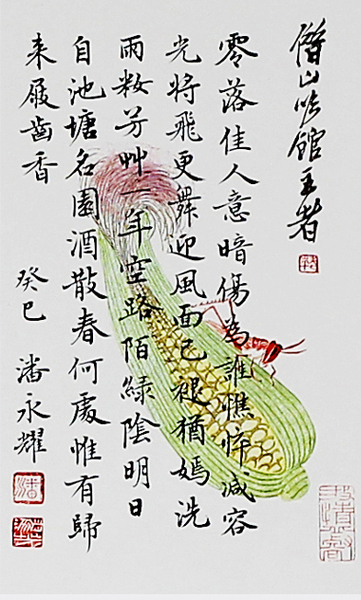 借山吟館主者
零落佳人意暗傷為誰憔悴減容
光將飛更舞迎風面已褪猶嫣洗
雨籹芳艸一年空路陌綠陰明日
自池塘名園酒散春何處惟有歸
来屐齒香
癸巳 潘永耀
潘